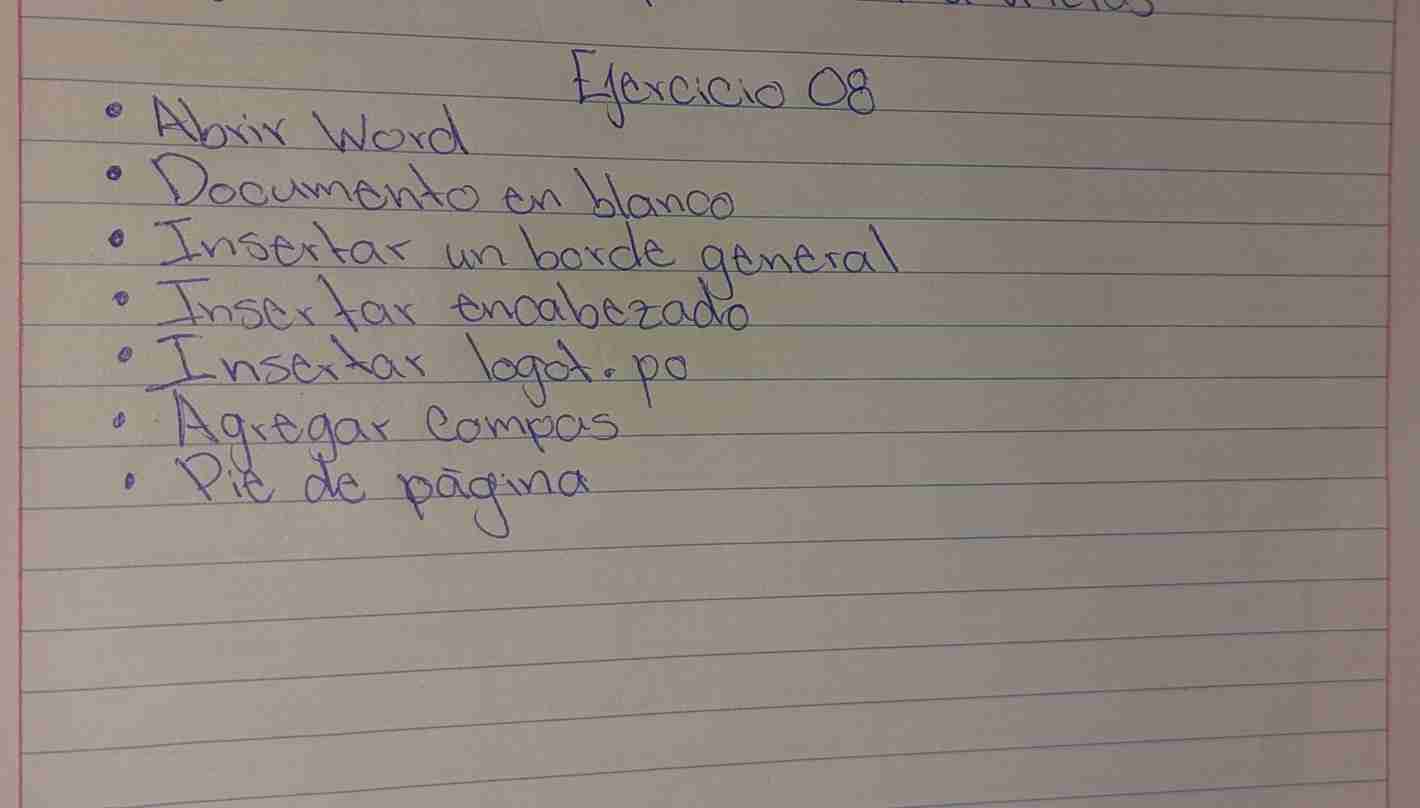 Ejercicio 08
• Abrir Word
• Documento en blanco
• Insertar un borde general
• Insertar encabezado
• Insertar logot.po
• Agregar Compas
• Pie de página